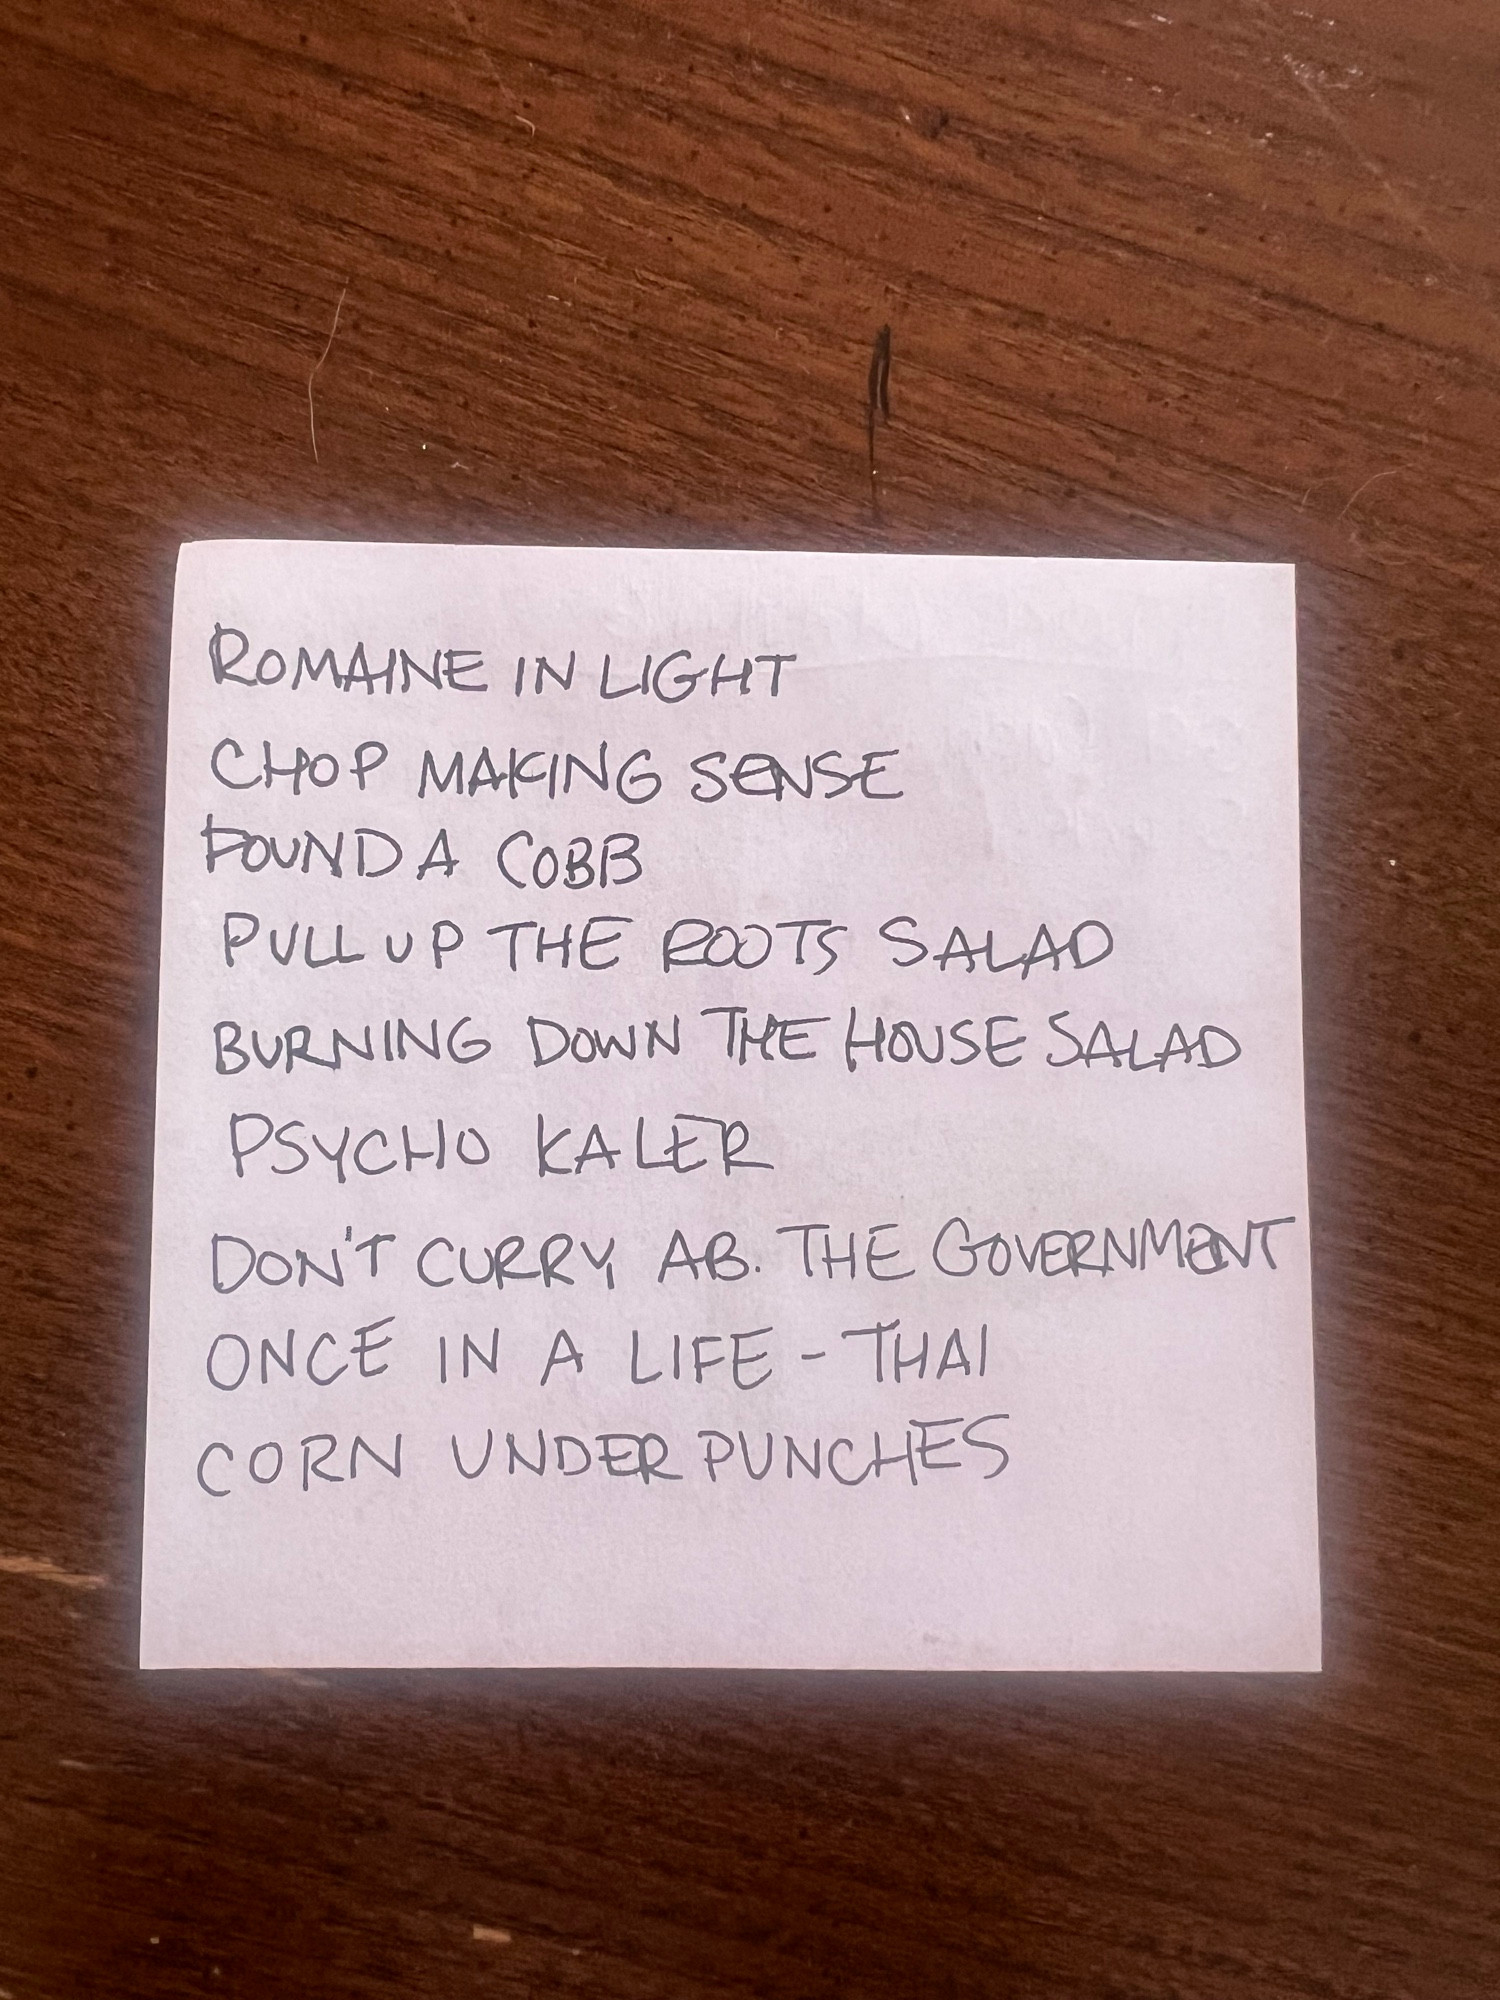 ROMAINE IN LIGHT
CHOP MAKING SENSE
FOUND A COBB
PULL UP THE ROOTS SALAD
BURNING DOWN THE HOUSE SALAD
PSYCHO KALER
DON'T CURRY AB. THE GOVERNMENT
ONCE IN A LIFE - THAI
CORN UNDER PUNCHES